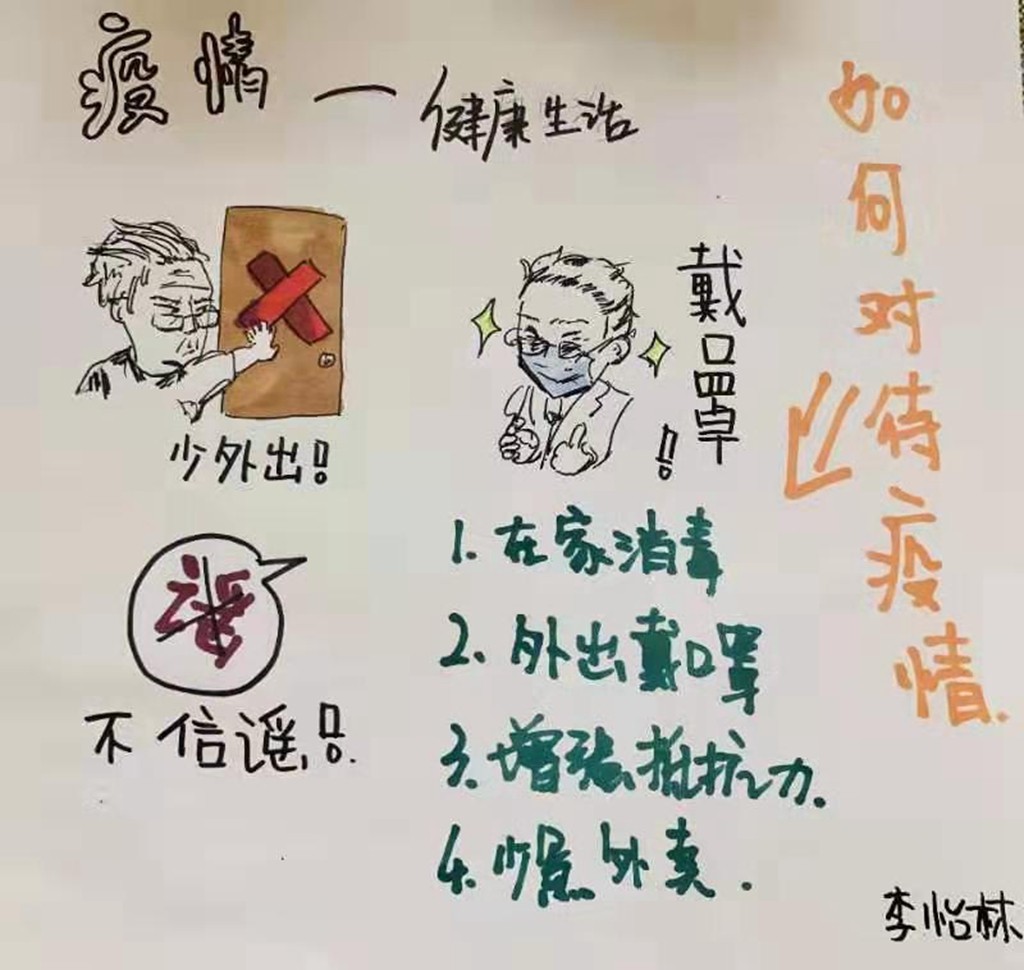 疫情一健康生活
如何对待疫情.
少外出!
戴口罩!
谣
不信谣!.
1.在家消毒
2.外出戴口罩
3.增强抵抗力.
4.少点外卖.
李怡林